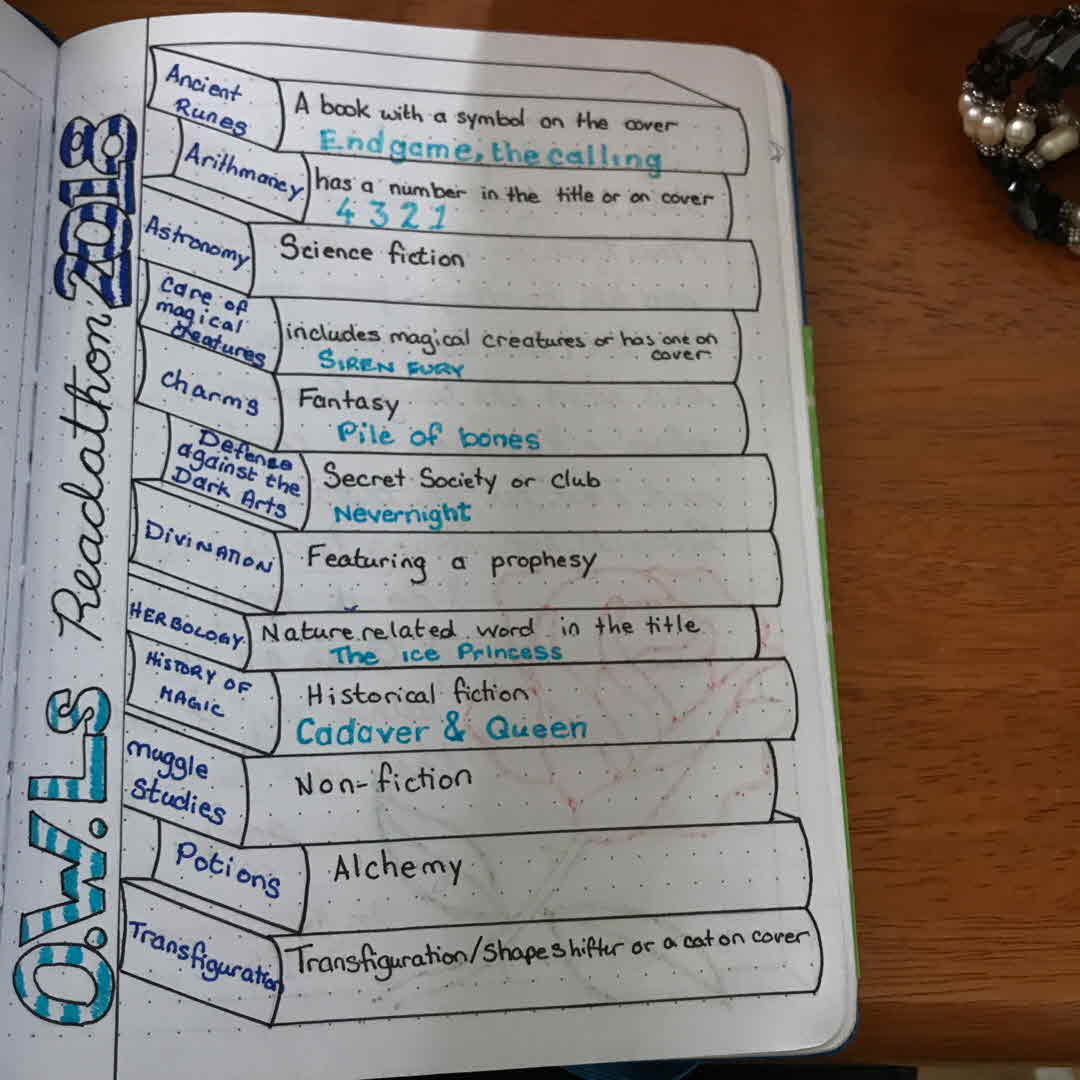 O.W.Ls Readathon 2018
Ancient
Runes
A book with a symbol on the cover
Endgame, the calling
Arithmancy
has a number in the title or on cover
4 3 2 1
Astronomy
Science fiction
Care of
magical
creatures
includes magical creatures or has one on
cover
SIREN FURY
Charms
Fantasy
Pile of bones
Defense
against the
Dark Arts
Secret Society or club
Nevernight
DIVINATION
Featuring a prophesy
HERBOLOGY
Nature related word in the title
The ice Princess
HISTORY OF
MAGIC
Historical fiction
Cadaver & Queen
Muggle
Studies
Non-fiction
Potions
Alchemy
Transfiguration
Transfiguration/Shapeshifter or a cat on cover